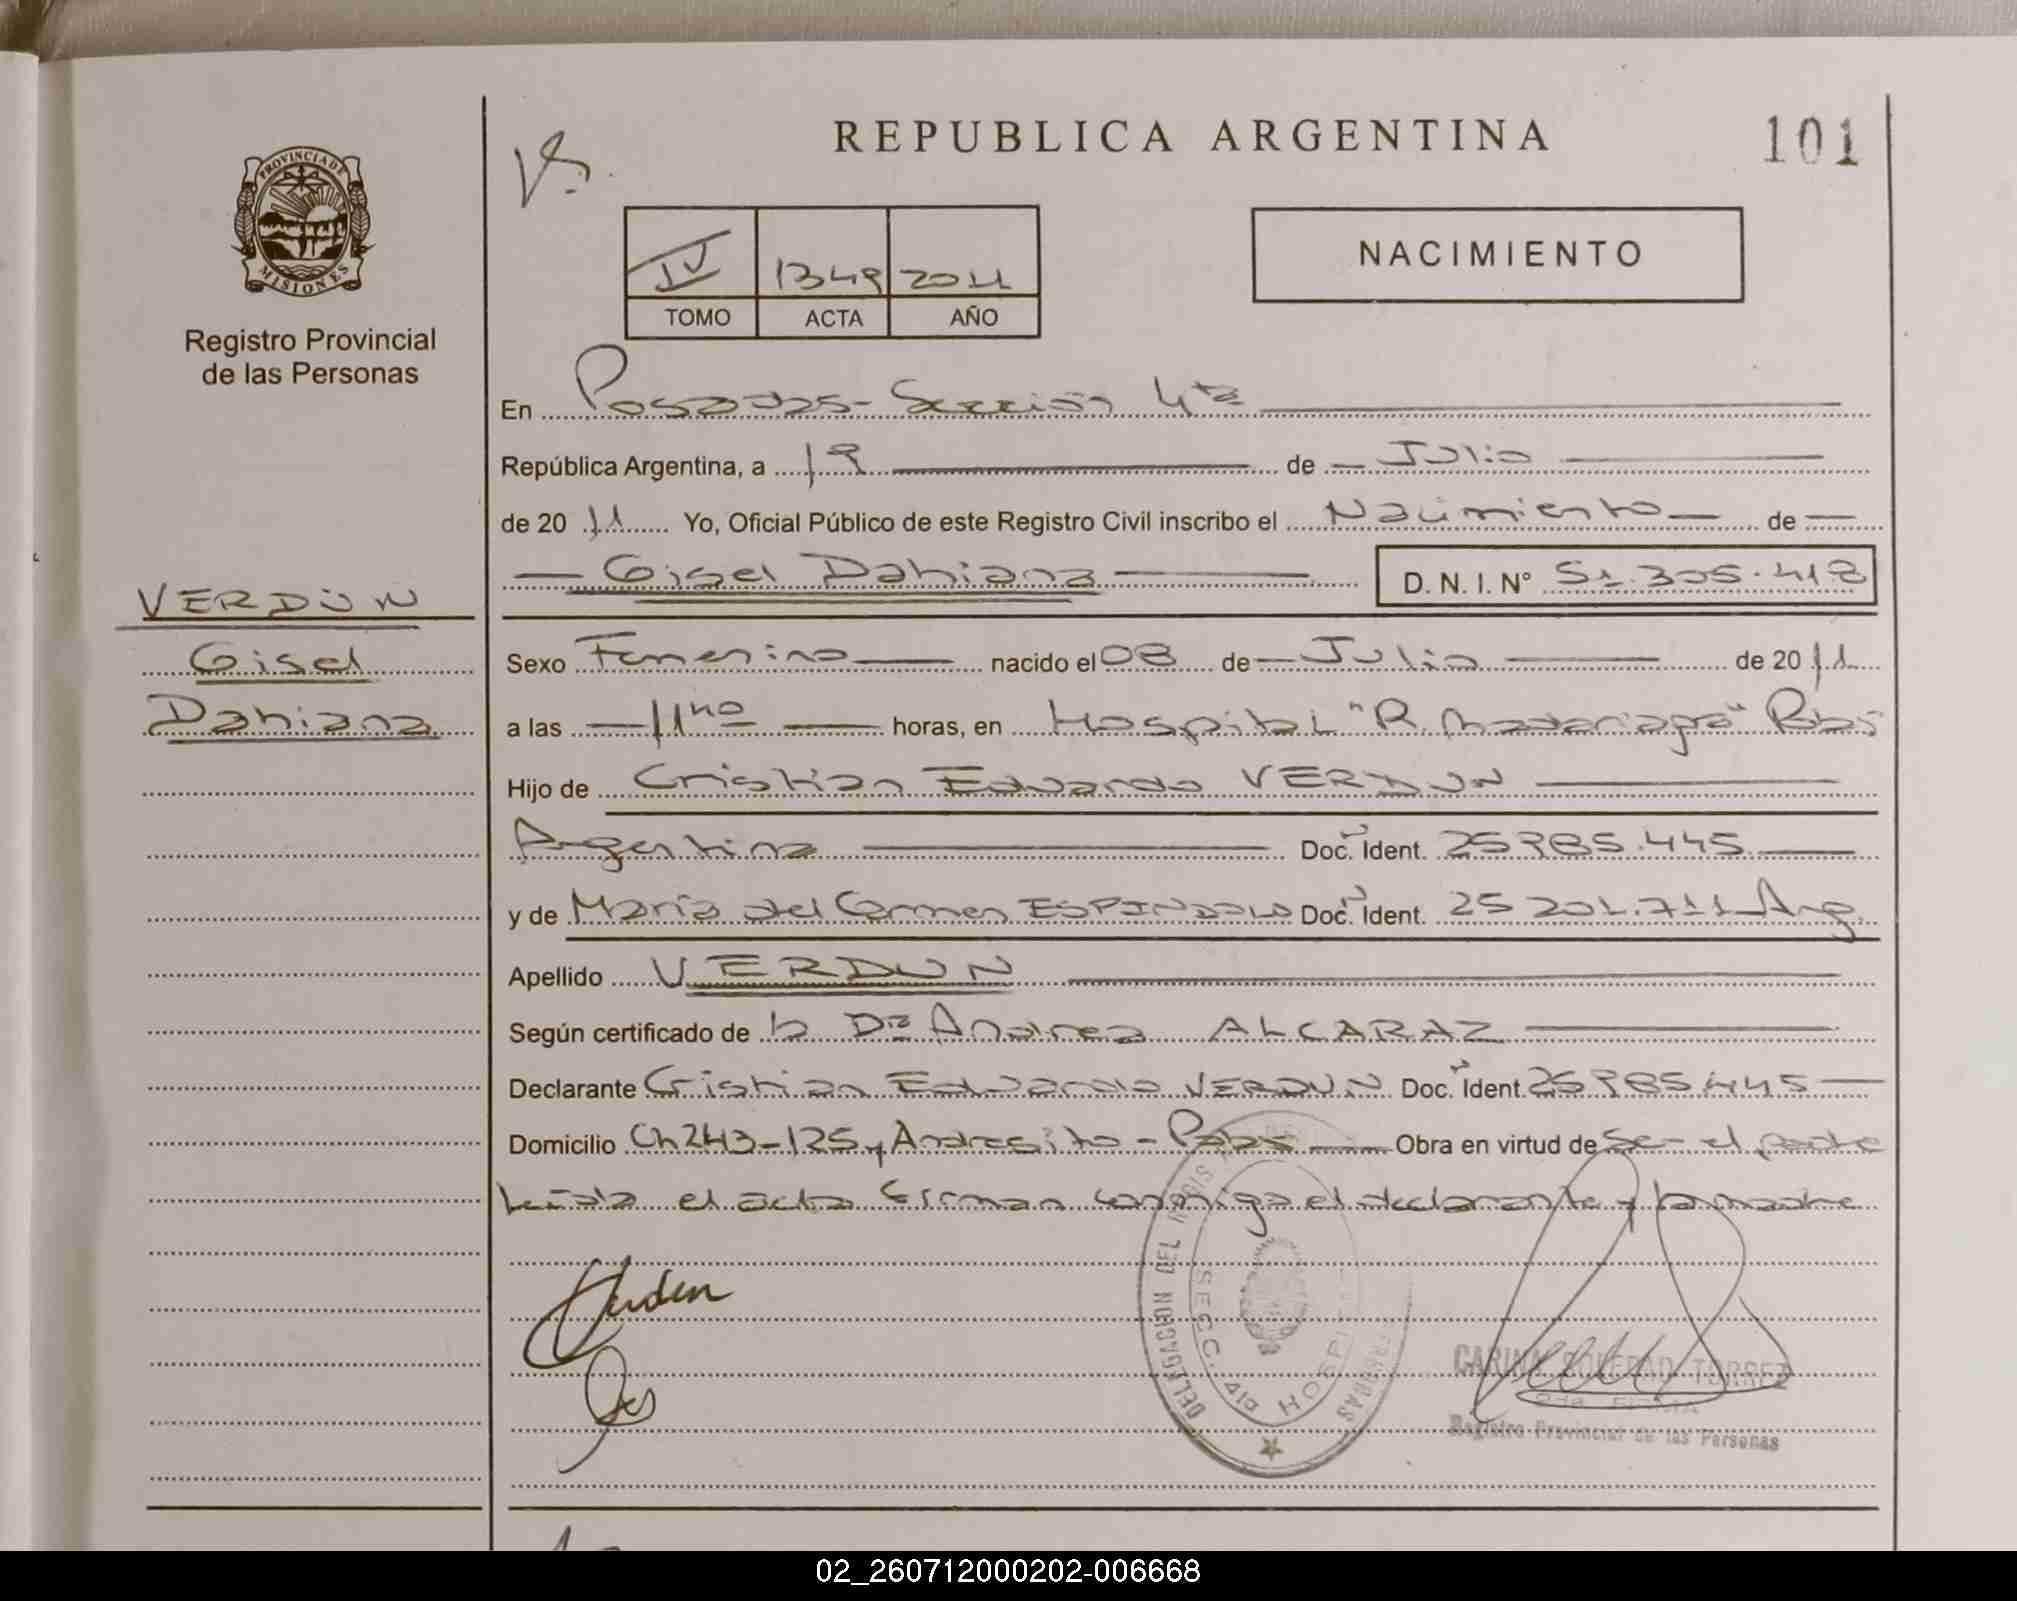 REPUBLICA ARGENTINA
101
PROVINCIA DE
MISIONES
Registro Provincial
de las Personas
IV 1349 2011
TOMO ACTA AÑO
NACIMIENTO
En Posadas - Sección 4ta
República Argentina, a 19 de Julio
de 2011 Yo, Oficial Público de este Registro Civil inscribo el Nacimiento de
Gisel Dahiana D. N. I. N° 51.305.418
VERDUN
Gisel
Dahiana
Sexo Femenino nacido el 08 de Julio de 2011
a las 11 horas, en Hospital "R. Madariaga" Pdas
Hijo de Cristian Eduardo VERDUN
Argentina Doc. Ident. 25.985.445
y de María del Carmen ESPINDOLA Doc. Ident. 25.201.711 Arg.
Apellido VERDUN
Según certificado de la Dra Andrea ALCARAZ
Declarante Cristian Eduardo VERDUN Doc. Ident. 25.985.445
Domicilio Ch 243 - 125 y Andresito - Pdas Obra en virtud de Ser el padre
Leída el acta firman conmigo el declarante y la madre
DELEGACION DEL
SECC. 4ta HOSPITAL
CARINA SOLEDAD TORREZ
2da FIRMA
Registro Provincial de las Personas
02_260712000202-006668